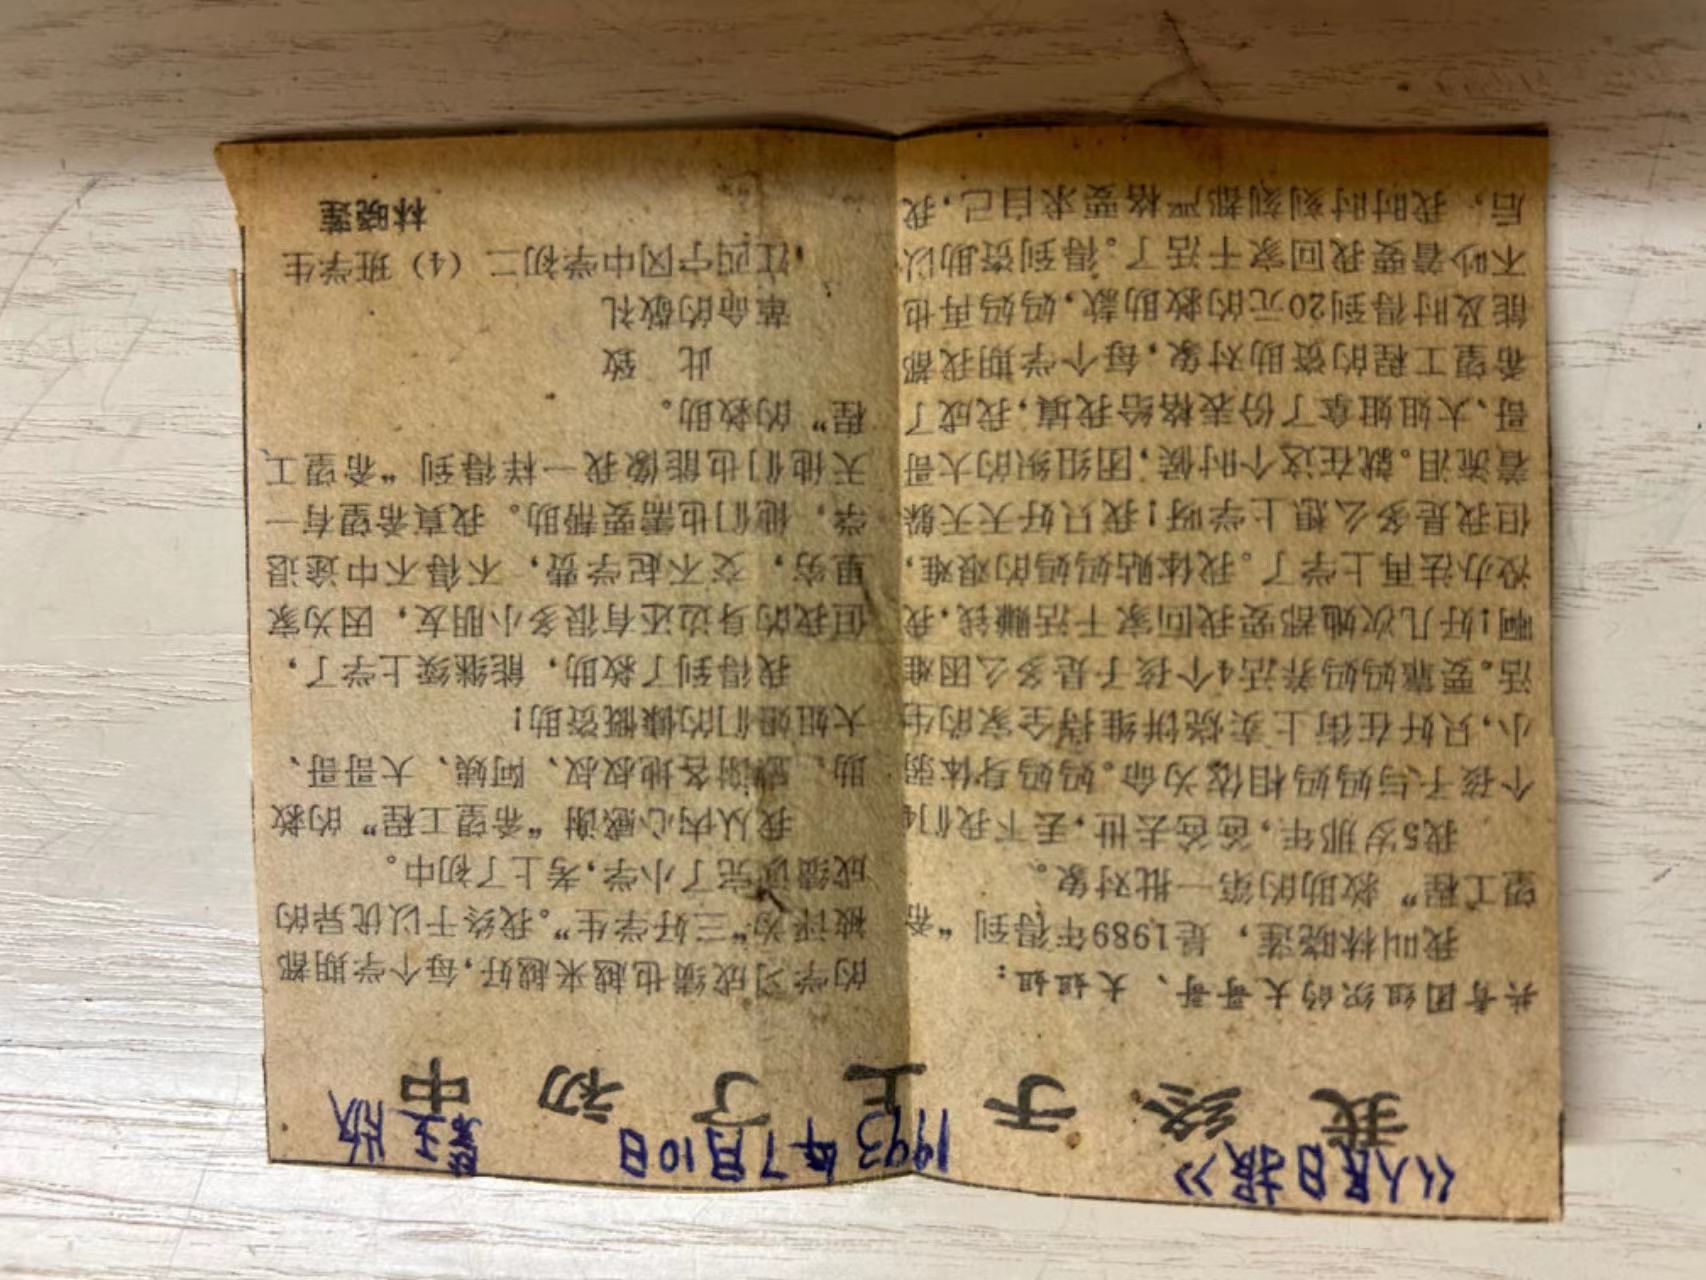 《人民日报》 1993年7月10日 第五版
我终于上了初中
共青团组织的大哥哥、大姐姐：
我叫林晓莲，是1989年得到“希
望工程”救助的第一批对象。
我5岁那年，爸爸去世，丢下我们4
个孩子与妈妈相依为命。妈妈身体弱
小，只好在街上卖烧饼维持全家的生
活。要靠妈妈养活4个孩子是多么困难
啊！好几次她都要我回家干活赚钱，我
没办法再上学了。我体贴妈妈的艰难，
但我是多么想上学呀！我只好天天躲
着流泪。就在这个时候，团组织的大哥
哥、大姐姐拿了份表格给我填，我成了
希望工程的资助对象，每个学期我都
能及时得到20元的救助款，妈妈再也
不吵着要我回家干活了。得到资助以
后，我时时刻刻都严格要求自己，我
的学习成绩也越来越好，每个学期都
被评为“三好学生”。我终于以优异的
成绩读完了小学，考上了初中。
我从内心感谢“希望工程”的救
助，感谢各地叔叔、阿姨、大哥哥、
大姐姐们的慷慨资助！
我得到了救助，能继续上学了，
但我的身边还有很多小朋友，因为家
里穷，交不起学费，不得不中途退
学，他们也需要帮助。我真希望有一
天他们也能像我一样得到“希望工
程”的救助。
此 致
革命的敬礼
江西宁冈中学初二（4）班学生
林晓莲